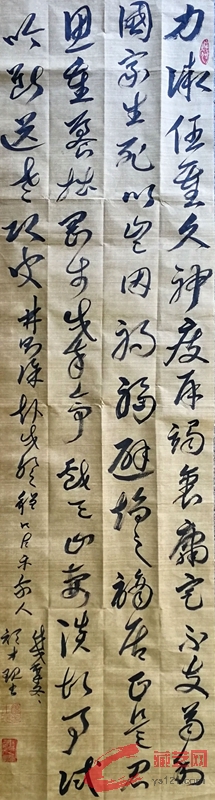 力微任重久神疲再竭衰庸定不支苟利
國家生死以豈因禍福避趨之謫居正是君
恩重養拙剛於戍卒宜戲與山妻談故事試
吟斷送老頭皮林則徐赴戍登程口占示家人
ya12